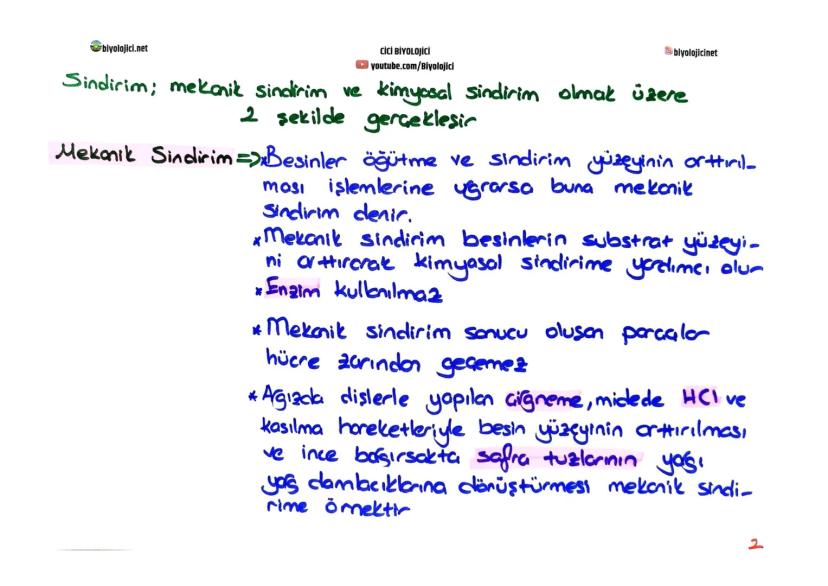 biyolojici.net
CİCİ BİYOLOJİCİ
youtube.com/Biyolojici
biyolojicinet
Sindirim; mekanik sindirim ve kimyasal sindirim olmak üzere
2 şekilde gerçekleşir
Mekanik Sindirim => * Besinler öğütme ve sindirim yüzeyinin arttırıl-
ması işlemlerine uğrarsa buna mekanik
sindirim denir.
* Mekanik sindirim besinlerin substrat yüzeyi-
ni arttırarak kimyasal sindirime yardımcı olur
* Enzim kullanılmaz
* Mekanik sindirim sonucu oluşan parçalar
hücre zarından geçemez
* Ağızda dişlerle yapılan çiğneme, midede HCl ve
kasılma hareketleriyle besin yüzeyinin arttırılması
ve ince bağırsakta safra tuzlarının yağı
yağ damlacıklarına dönüştürmesi mekanik sindi-
rime örnektir
2